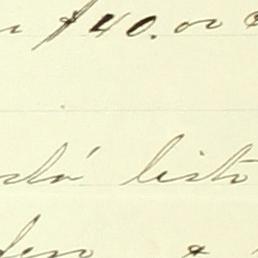 $40.00
stá listo
den